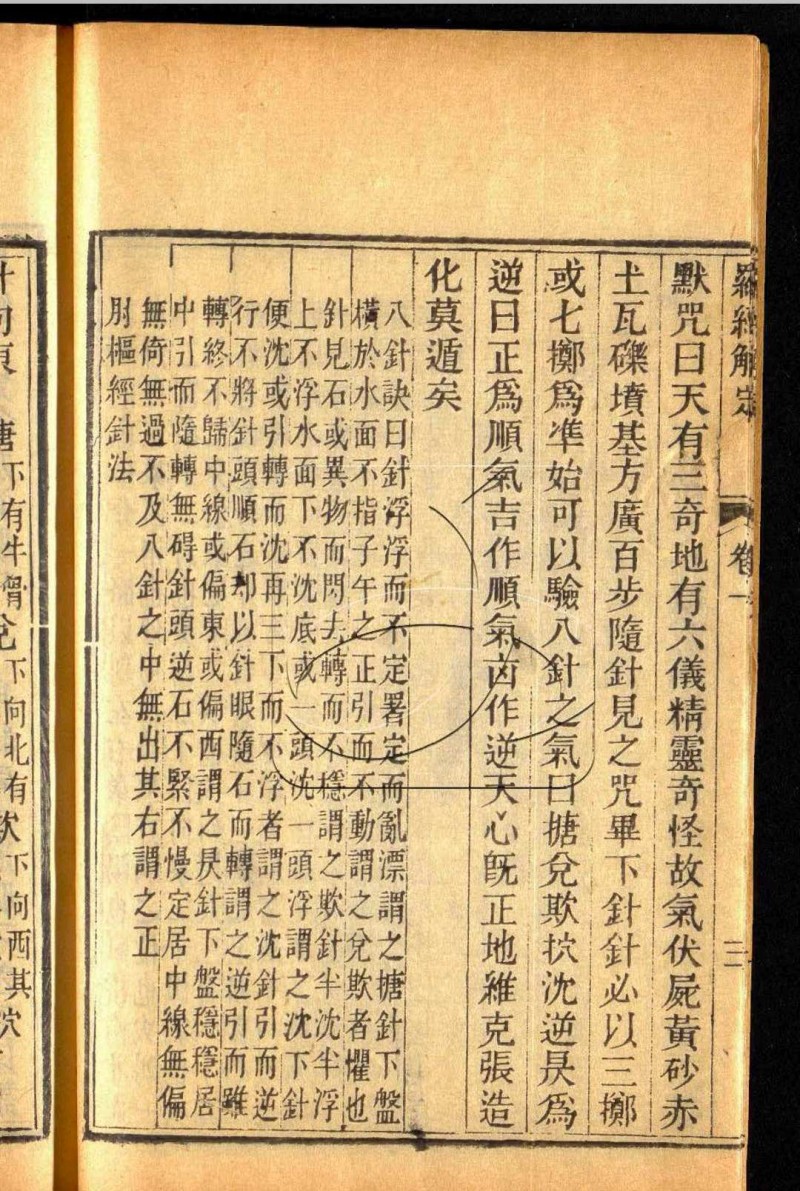 羅經解定 卷一 三
默咒曰天有三奇地有六儀精靈奇怪故氣伏屍黃砂赤
土瓦礫墳基方廣百步隨針見之咒畢下針針必以三擲
或七擲爲準始可以驗八針之氣曰搪兌欺抗沈逆昃爲
逆曰正爲順氣吉作順氣凶作逆天心旣正地維克張造
化莫遁矣
八針訣曰針浮浮而不定署定而亂漂謂之搪針下盤
橫於水面不指子午之正引而不動謂之兌欺者懼也
針見石或異物而閃去轉而不穩謂之欺針半沈半浮
上不浮水面下不沈底或一頭沈一頭浮謂之沈下針
便沈或引轉而沈再三下而不浮者謂之沈針引而逆
行不將針頭順石却以針眼隨石而轉謂之逆引而雖
轉終不歸中線或偏東或偏西謂之昃針下盤穩穩居
中引而隨轉無碍針頭逆石不緊不慢定居中線無偏
無倚無過不及八針之中無出其右謂之正
肘樞經針法
下有牛
下向北有
下向西其穴